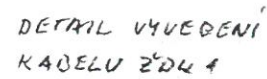 DETAIL VYVEDENÍ
KABELU ŽDK 1